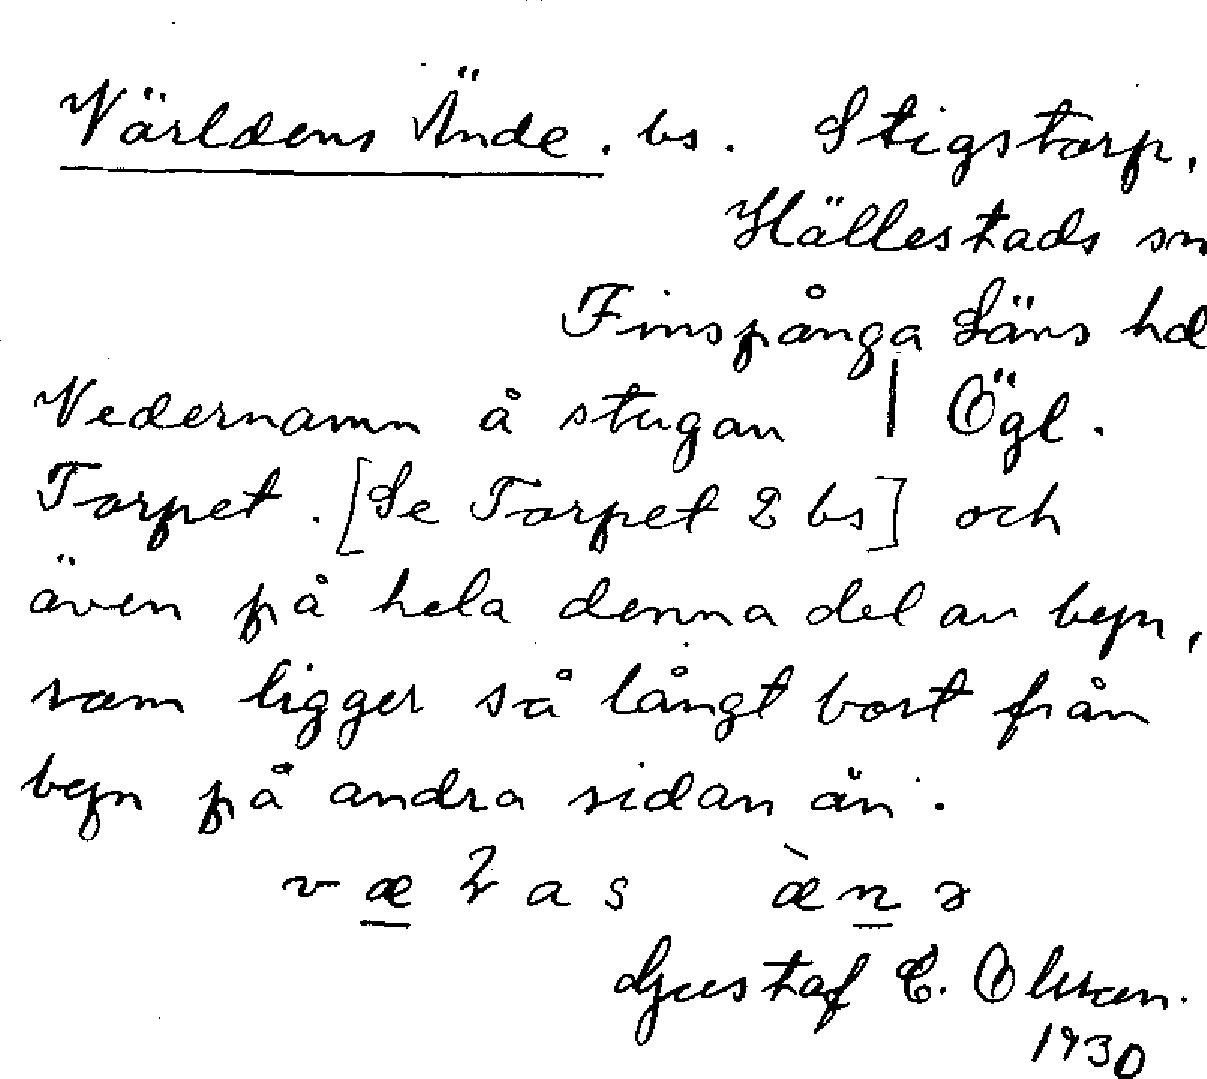 Världens Ände. bs. Stigstorp,
Hällestads sn
Finspånga Läns hd
Vedernamn å stugan | Ögl.
Torpet. [Se Torpet 2 bs] och
även på hela denna del av byn,
som ligger så långt bort från
byn på andra sidan ån.
Gustaf E. Olsson.
1930